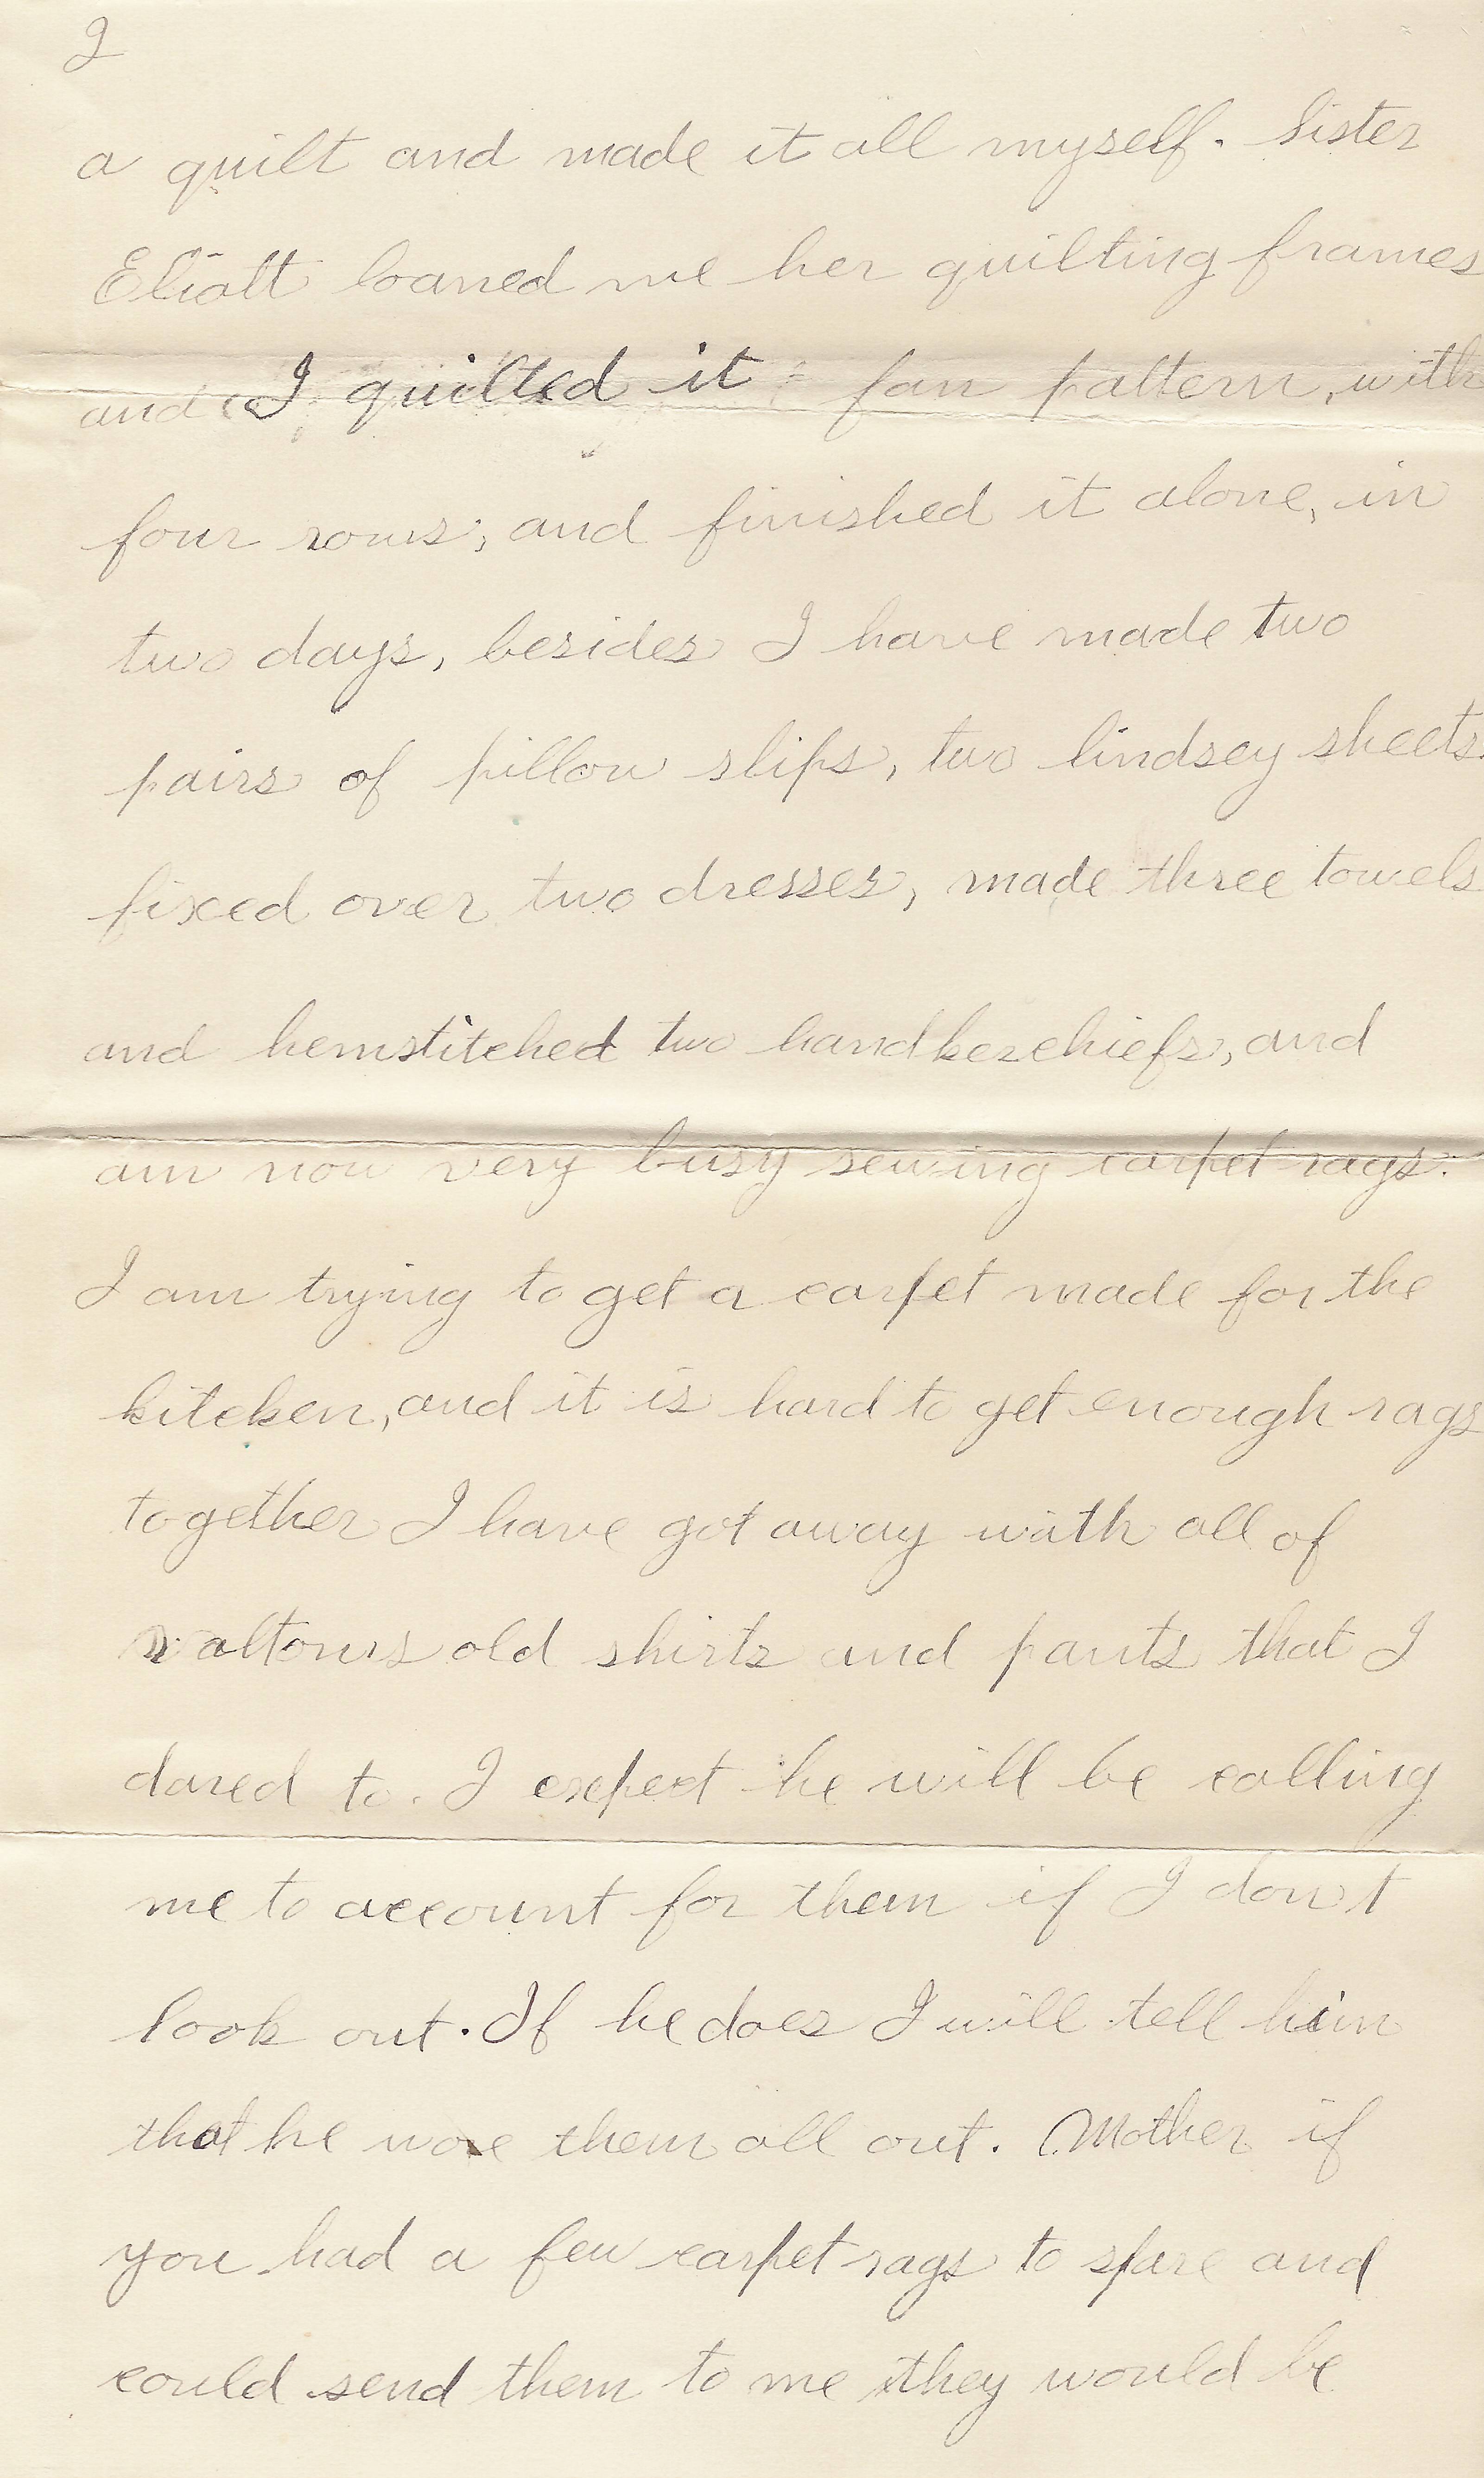 2
a quilt and made it all myself. Sister
Eliott loaned me her quilting frames
and I quilted it fan pattern, with
four rows, and finished it alone, in
two days, besides I have made two
pairs of pillow slips, two lindsey sheets.
fixed over two dresses, made three towels
and hemstitched two handkerchiefs, and
am now very busy sewing carpet rags.
I am trying to get a carpet made for the
kitchen, and it is hard to get enough rags
together I have got away with all of
Waltons old shirts and pants that I
dared to. I expect he will be calling
me to account for them if I don't
look out. If he does I will tell him
that he wore them all out. Mother if
you had a few carpet rags to spare and
could send them to me they would be